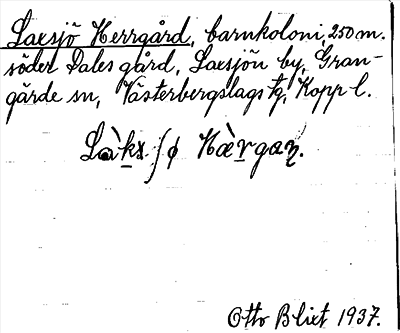 Laxsjö Herrgård, barnkoloni, 250 m.
söder Dales gård, Laxsjön by, Gran-
gärde sn, Västerbergslags tg, Kopp l.
Hæ̀rgaṇ.
Otto Blixt 1937.